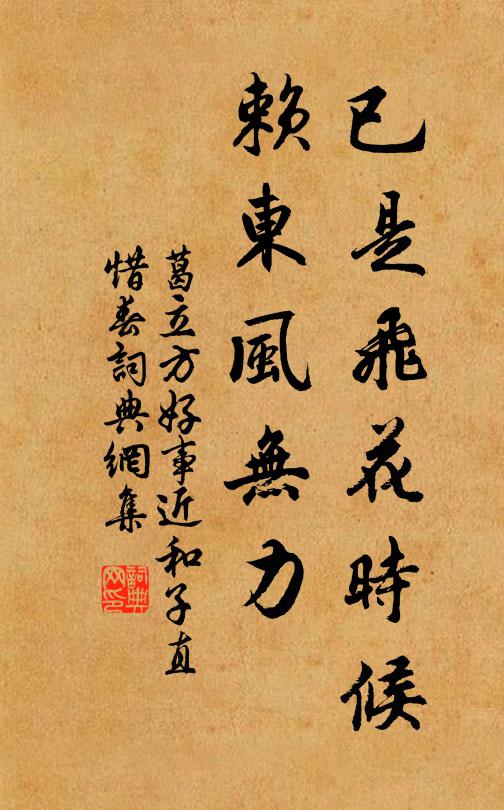 已是飛花時候
賴東風無力
葛立方好事近和子直
惜春詞典網集
詞典
网印